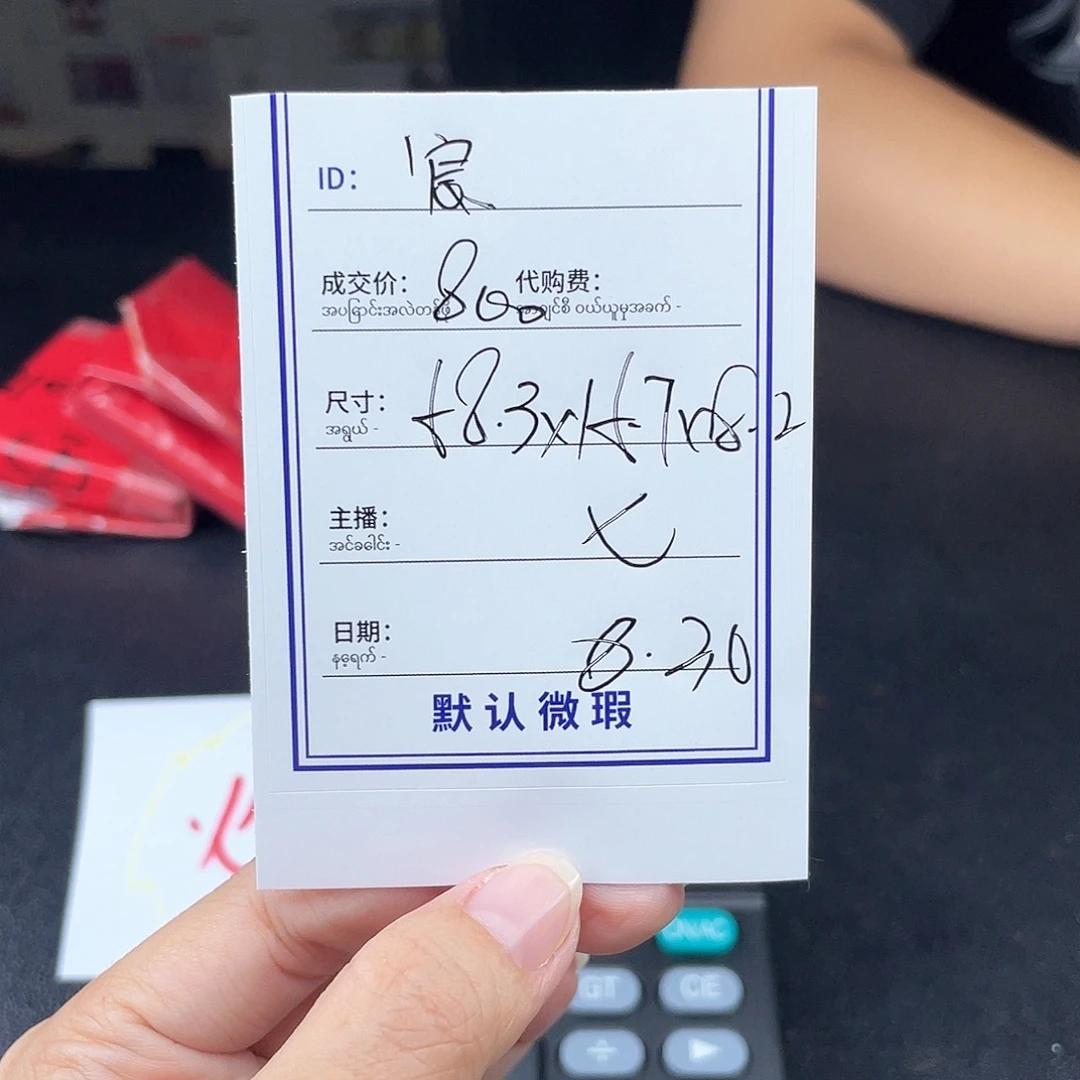 ID: 宸
成交价: 800 代购费:
အပြောင်းအလဲတန်ဖိုး
ဝယ်ယူမှုအခက် -
尺寸: 58.3x15.7x8.2
အရွယ် -
主播: 七
အင်ခေါင်း -
日期: 8.20
နေ့ရက် -
默认微瑕
GT CE
÷ ▶